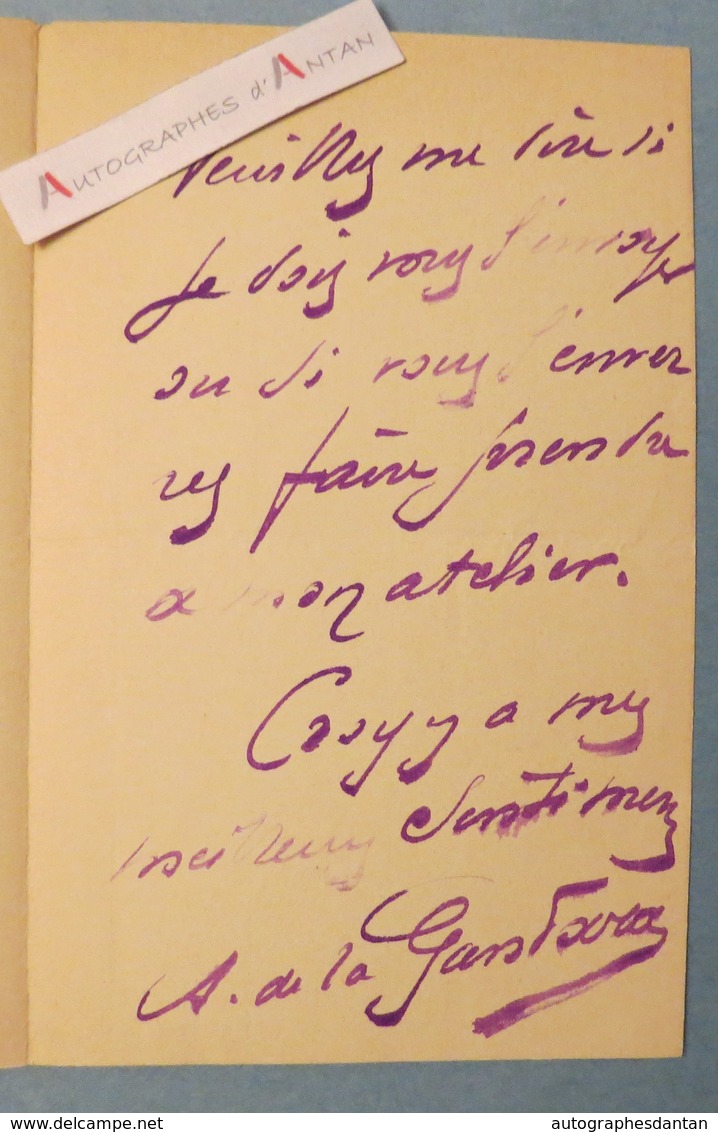 AUTOGRAPHES d'ANTAN
Veuillez me dire si
je dois vous l'envoyer
ou si vous l'enver
rez faire prendre
a mon atelier.
Croyez a mes
meilleurs sentimens
A. de la Gandara
www.delcampe.net
autographesdantan